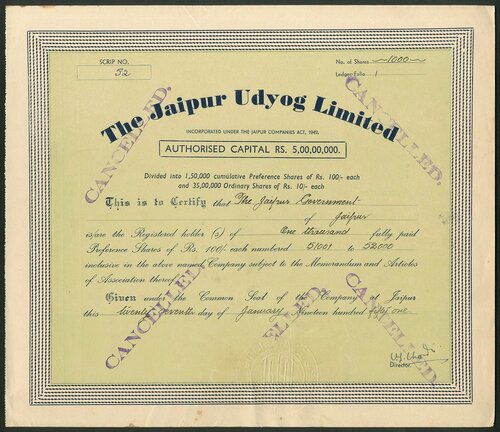 SCRIP NO.
52
No. of Shares 1000
Ledger Folio 1
The Jaipur Udyog Limited
INCORPORATED UNDER THE JAIPUR COMPANIES ACT, 1942.
AUTHORISED CAPITAL RS. 5,00,00,000.
Divided into 1,50,000 cumulative Preference Shares of Rs. 100/- each
and 35,00,000 Ordinary Shares of Rs. 10/- each
This is to Certify that The Jaipur Government
of Jaipur
is/are the Registered holder (s) of One thousand fully paid
Preference Shares of Rs. 100/- each numbered 51001 to 52000
inclusive in the above named Company subject to the Memorandum and Articles
of Association thereof
Given under the Common Seal of the Company at Jaipur
this twenty seventh day of January Nineteen hundred fifty one.
Director.
CANCELLED.
CANCELLED.
CANCELLED.
CELLED.
CANCELLED.